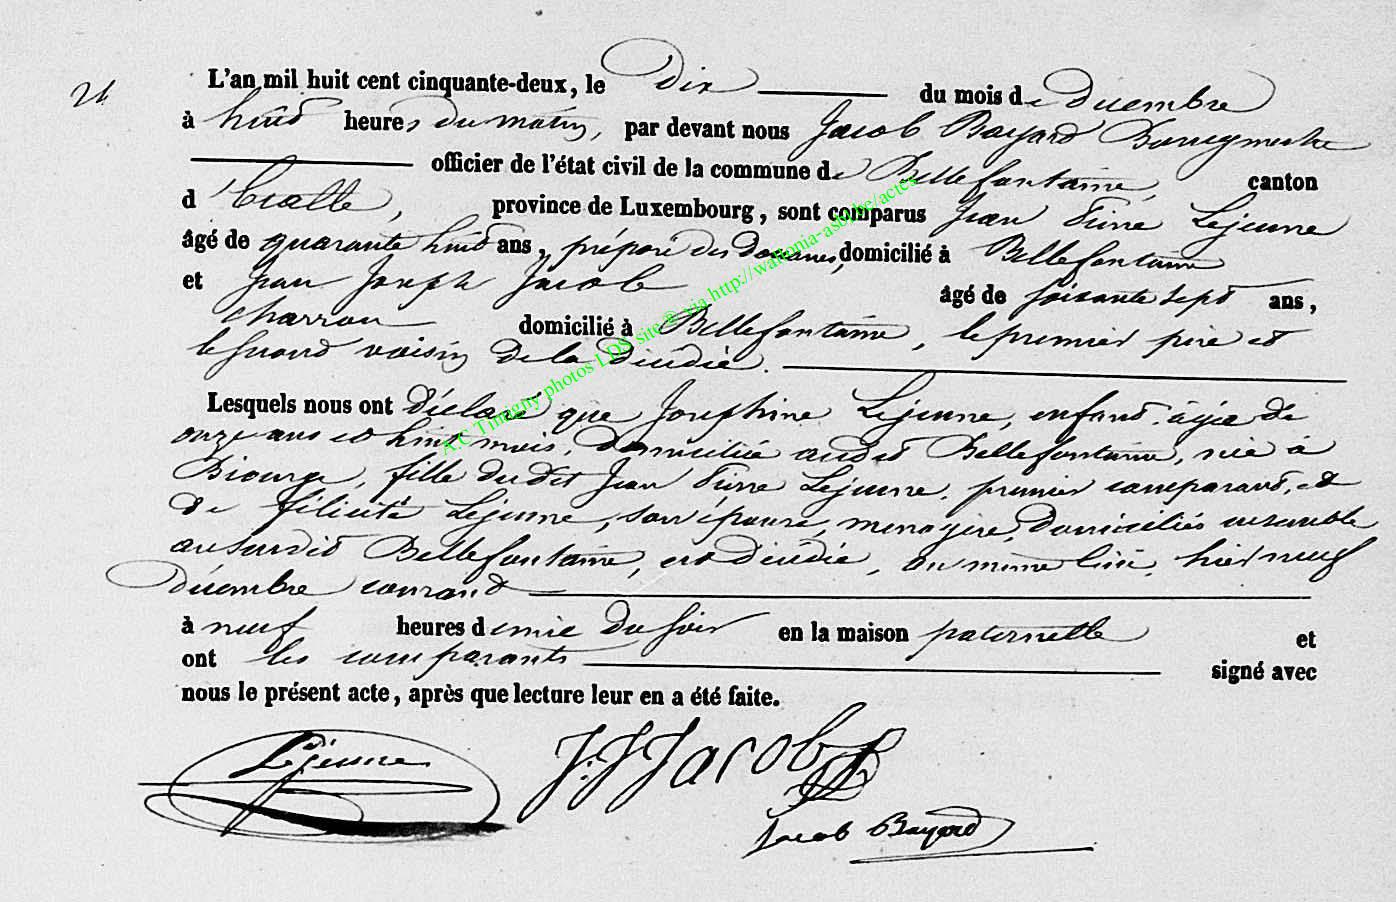 L'an mil huit cent cinquante-deux, le Dix du mois de Decembre
à huit heures du matin, par devant nous Jacob Bayard Bourgmestre
officier de l'état civil de la commune de Bellefontaine, canton
d'Etalle, province de Luxembourg, sont comparus Jean Pierre Lejeune
âgé de quarante huit ans, préposé des Douanes, domicilié à Bellefontaine
et Jean Joseph Jacob âgé de soisante sept ans,
charron domicilié à Bellefontaine, le premier père et
le second voisin de la décédée.
Lesquels nous ont déclaré que Joséphine Lejeune, enfant, âgée de
onze ans et huit mois, domiciliée audit Bellefontaine, née à
Biourge, fille dudit Jean Pierre Lejeune, premier comparant, et
de félicité Lejeune, son épouse, menagère, domiciliés ensemble
au susdit Bellefontaine, est décédée, au même lieu, hier neuf
décembre courant
à neuf heures demie du soir en la maison paternelle et
ont les comparants signé avec
nous le présent acte, après que lecture leur en a été faite.
Lejeune J: J Jacob
Jacob Bayard
A.C Tintigny photos LDS site © via http://wallonia-asbl.be/actes